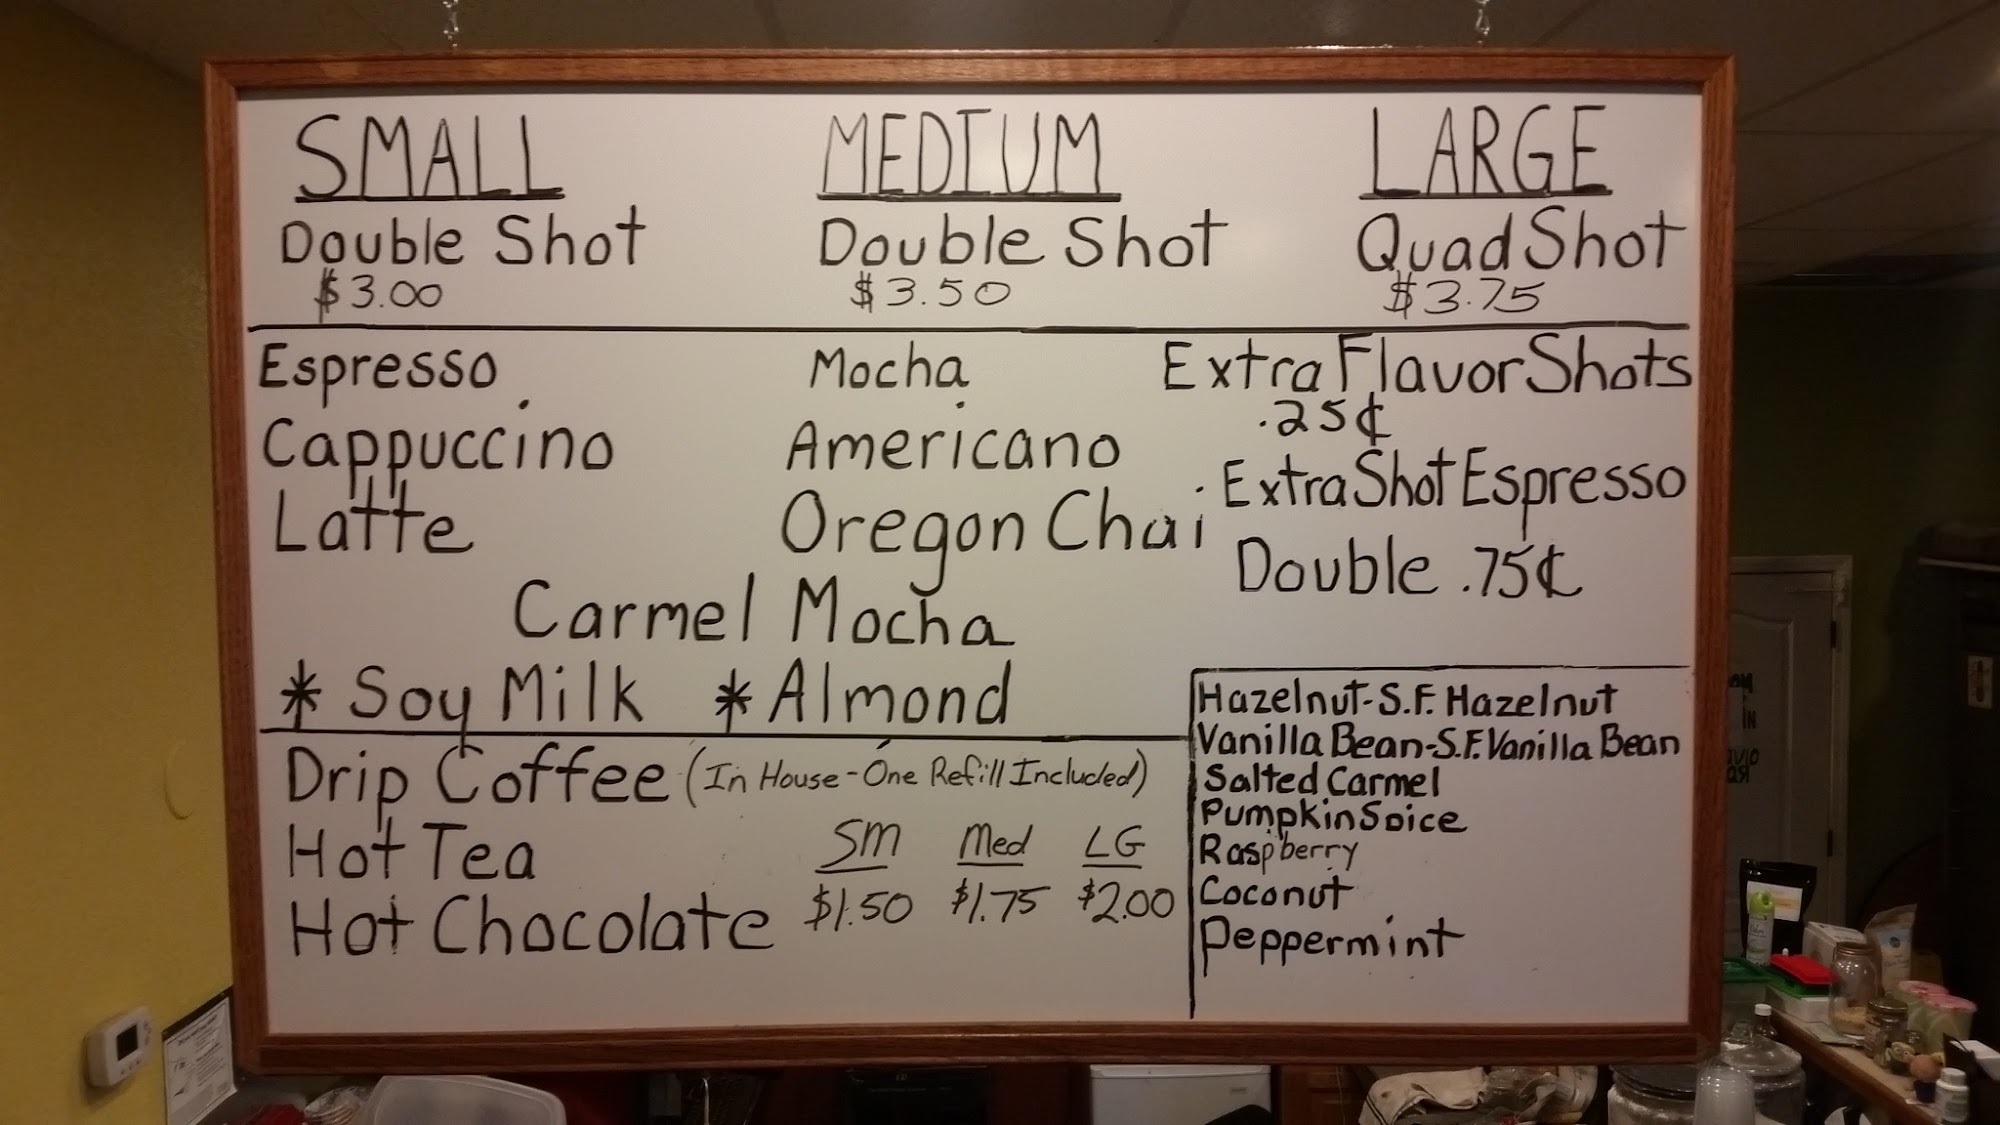 SMALL MEDIUM LARGE
Double Shot Double Shot Quad Shot
$3.00 $3.50 $3.75
Espresso Mocha Extra Flavor Shots
.25¢
Cappuccino Americano Extra Shot Espresso
Latte Oregon Chai Double .75¢
Carmel Mocha
* Soy Milk * Almond
Drip Coffee (In House - One Refill Included)
Hot Tea SM Med LG
Hot Chocolate $1.50 $1.75 $2.00
Hazelnut - S.F. Hazelnut
Vanilla Bean - S.F. Vanilla Bean
Salted Carmel
Pumpkin Spice
Raspberry
Coconut
Peppermint